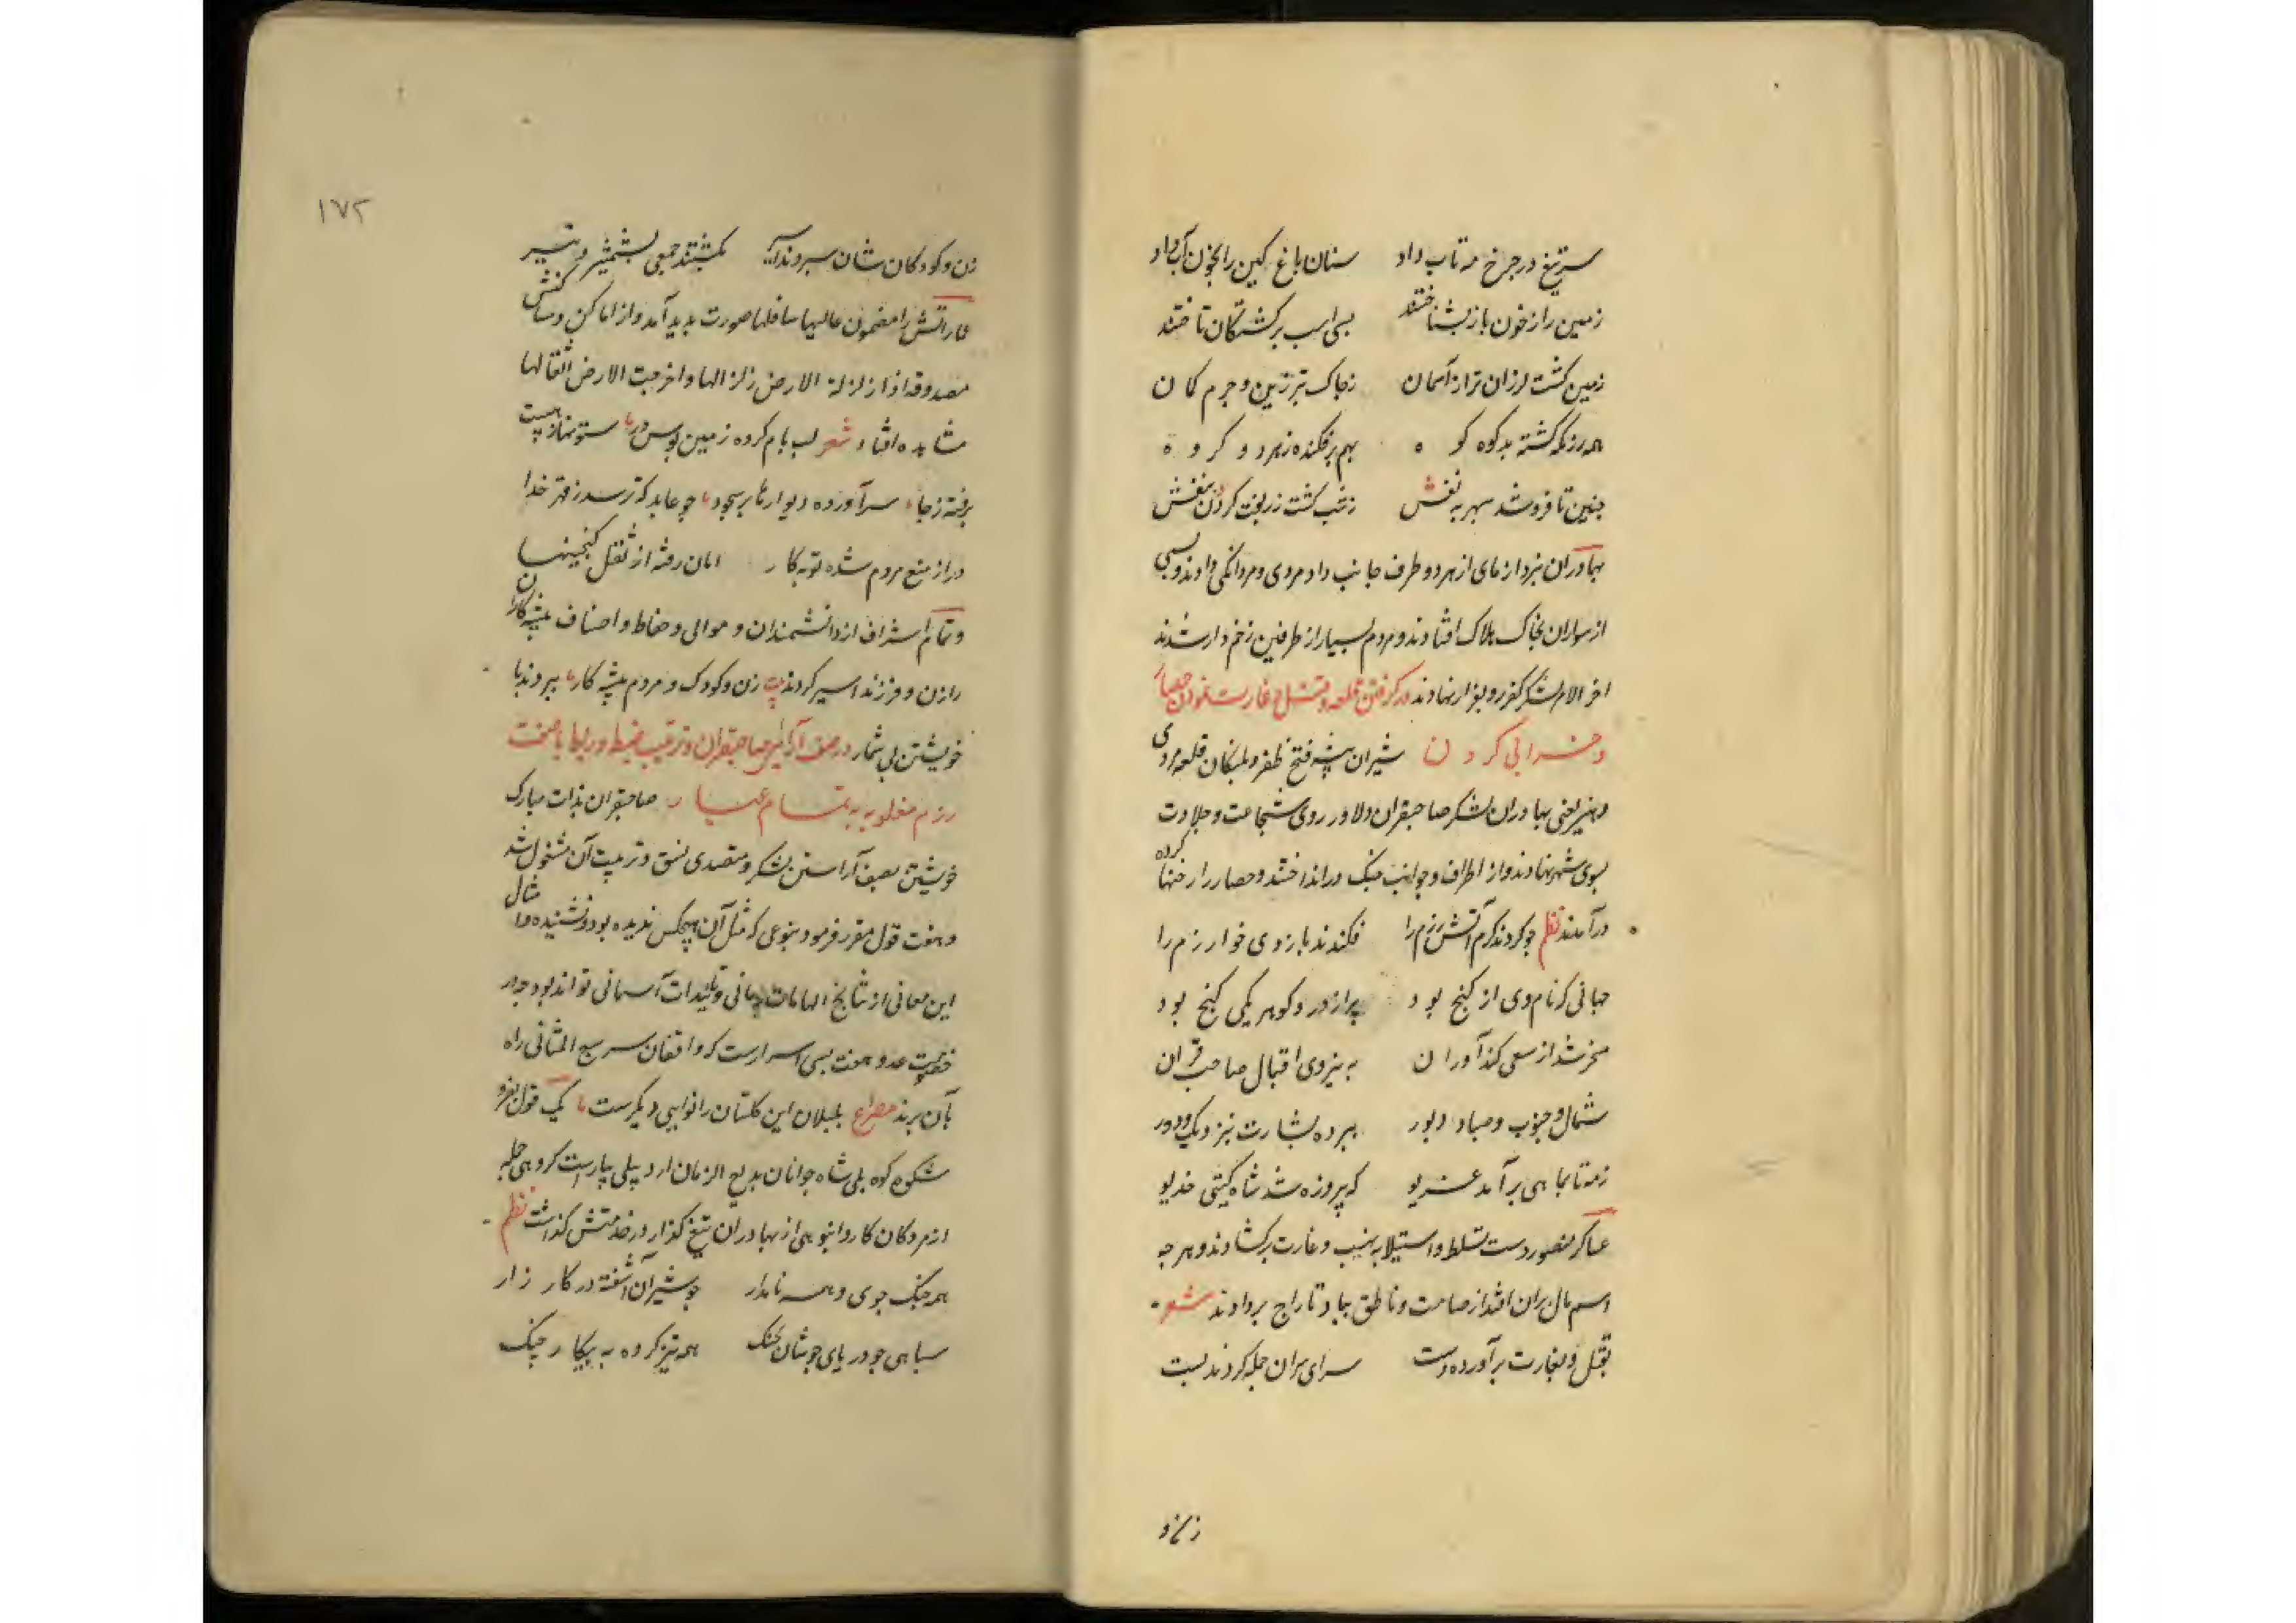 سر تیغ در چرخ مه تاب داد سنان باغ کین را بخون آب داد
زمین را ز خون باز نشناختند بسی اسب بر کشتگان تاختند
زمین کشت لرزان تر از آسمان ز چاک تبرزین و جرم کمان
همه رزمگه کشته بد کوه کوه بهم بر فکنده ز هر دو گروه
چنین تا فرو شد سپهر بنفش ز شب کشت زربفت کردون بنفش
بهادران نبرد ازمای از هر دو طرف جانب داد مردی و مردانکی دادند و بسی
از سواران بخاک هلاک افتادند و مردم بسیار از طرفین زخم دار شدند
اخر الامر لشکر کفر رو بفرار نهادند در کرفتن قلعه و قتل و غارت نمودن حصار
و خرابی کردن شیران بیشه فتح و ظفر و پلنکان قلعه مردی
و هنر یعنی بهادران لشکر صاحبقران دلاور روی شجاعت و جلادت
بسوی شهر نهادند و از اطراف و جوانب جنک در انداختند و حصار را رخنها کرده
در آمدند نظم چو کردند کرم آتش رزم را فکندند باروی خوارزم را
جهانی که نام وی از کنج بود پر از در و کوهر یکی کنج بود
مسخر شد از سعی کندآوران به نیروی اقبال صاحب قران
شمال و جنوب و صبا و دبور ببرده بشارت بنزدیک و دور
ز مه تا بماهی برآمد غریو که پیروزه شد شاه کیتی خدیو
عساکر منصور دست تسلط و استیلا به نهب و غارت برکشادند و هر چه
اسم مال بران افتد از صامت و ناطق بباد تاراج بردادند شعر
بقتل و بغارت برآورده دست سرای سران جمله کردند پست
زن و
۱۷۲
زن و کودکان شان ببردند اسیر بکشتند جمعی بشمشیر و تیر
عماراتش را مضمون عالیها سافلها صورت پدید آمد و از اماکن و مساکنش
مصدوقه اذا زلزلة الارض زلزالها و اخرجت الارض اثقالها
مشاهده افتاد شعر لب بام کرده زمین بوس در ستونها ز هیبت
برفته ز جا سر آورده دیوارها بر سجود چو عابد که ترسد ز قهر خدا
در از منع مردم شده توبه کار امان رفته از ثقل کنجینها
و تمام اشراف از دانشمندان و موالی و حفاظ و اصناف پیشه کاران
را زن و فرزند اسیر کردند بیت زن و کودک و مردم پیشه کار ببردند با
خویشتن بی شمار در صف آرائی صاحبقران و ترتیب ضبط و ربط با هفت
رزم مغلوبه به تمام عیار صاحبقران بذات مبارک
خویشتن بصف آراستن لشکر و متصدی نسق و ترتیب آن مشغول شد
و هفت قول مقرر فرمود بنوعی که مثل آن هیچکس ندیده بود و نشنیده و امثال
این معانی از نتایج الهامات ربانی و تائیدات آسمانی تواند بود چه در
خصوصیت عدد هفت بسی اسرارست که واقفان سر سبع المثانی راه
بآن برند مصراع بلبلان این کلستان را نوایی دیکرست یک قول بفر و
شکوه کوه بلی شاه جوانان بدیع الزمان ارد پلی بیاراست کروهی جمله
از مردکان کار و انبوهی از بهادران تیغ کذار در خدمتش کذاشت نظم
همه جنک جوی و همه نامدار چو شیران آشفته در کار زار
سپاهی چو دریای جوشان بجنک همه تیز کرده به پیکار چنک